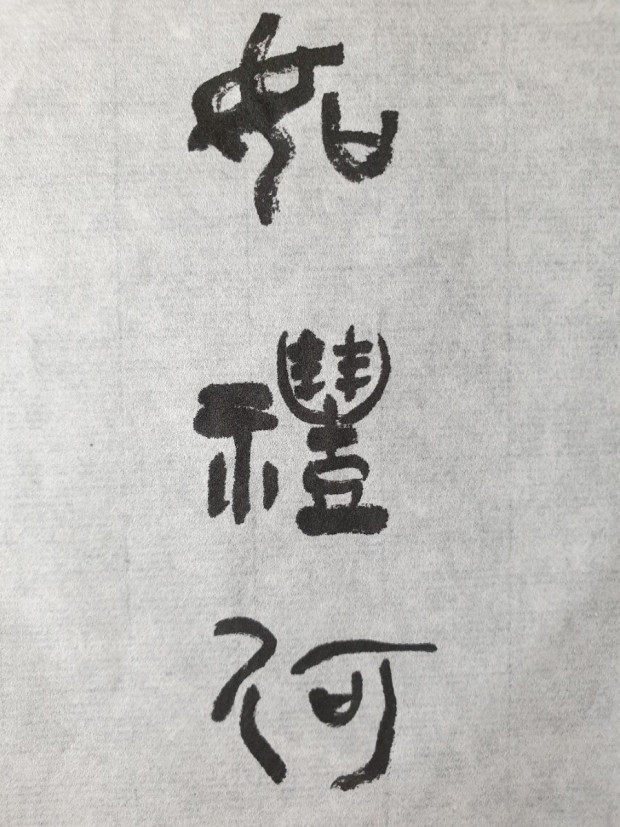 如禮何